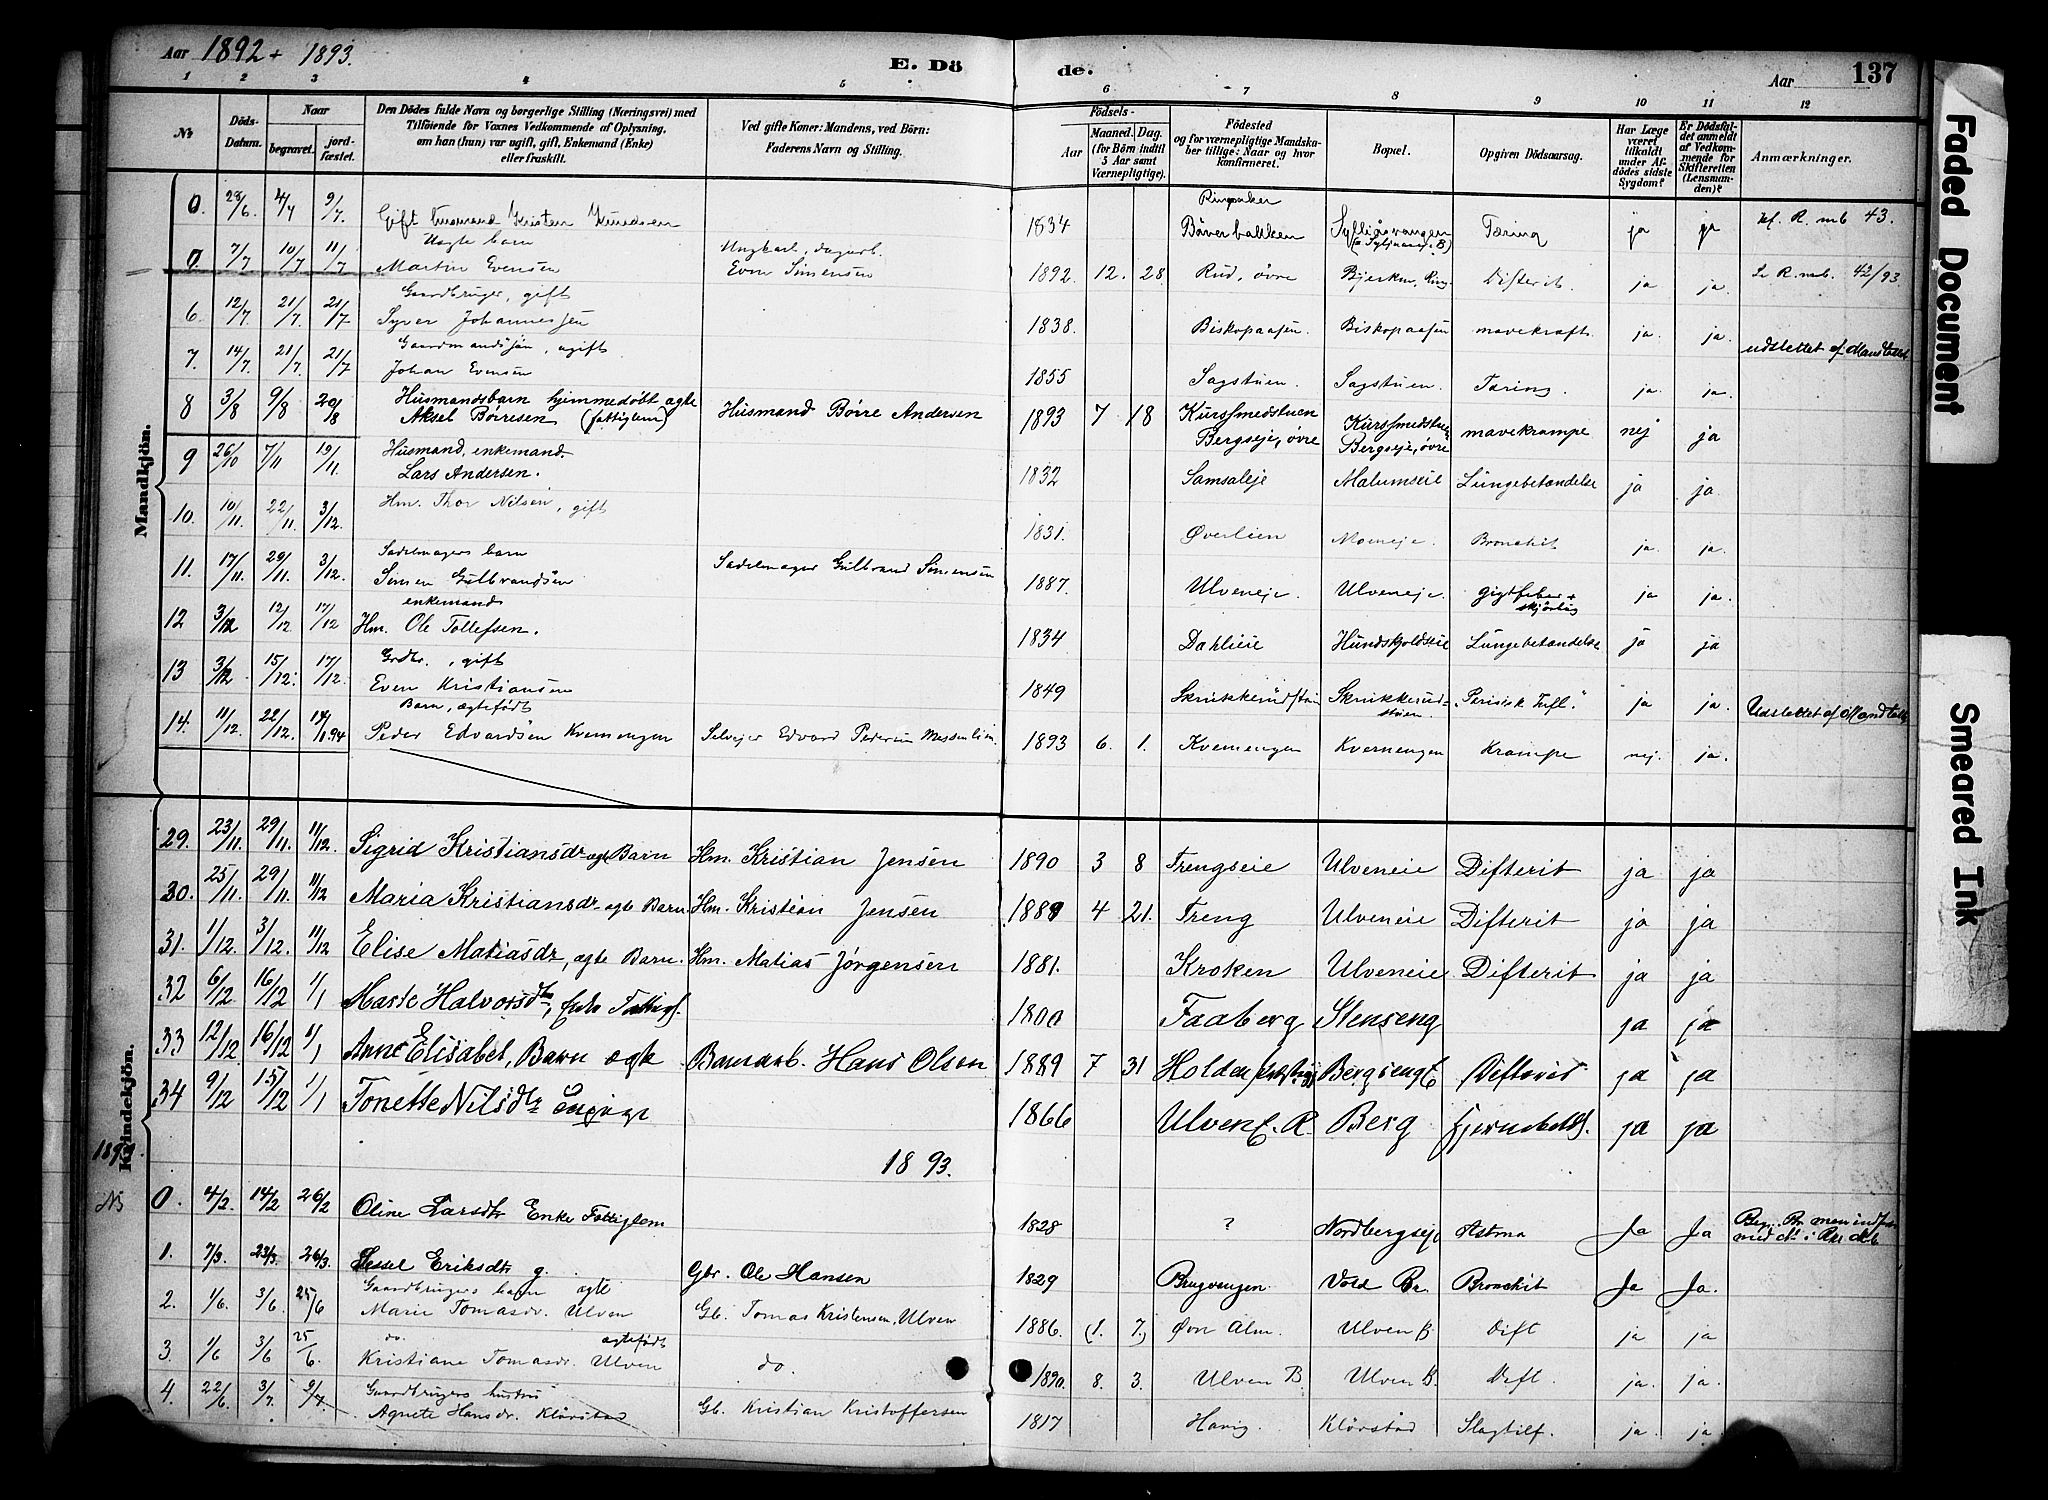 Aar 1892 + 1893.
E. Dö de.
Aar 137
1 2 3 4 5 6 7 8 9 10 11 12
№
Döds-Datum.
Naar
begravet.
jord-fæstet.
Den Dödes fulde Navn og borgerlige Stilling (Næringsvei) med
Tilföiende for Voxnes Vedkommende af Oplysning,
om han (hun) var ugift, gift, Enkemand (Enke)
eller fraskilt.
Ved gifte Koner: Mandens, ved Börn:
Faderens Navn og Stilling.
Födsels-
Aar
Maaned. Dag.
(for Börn indtil
5 Aar samt
Værnepligtige).
Födested
og for værnepligtige Mandska-
ber tillige: Naar og hvor
konfirmeret.
Bopæl.
Opgiven Dödsaarsag.
Har Læge
været
tilkaldt
under Af-
dödes sidste
Sygdom?
Er Dödsfal-
det anmeldt
af Vedkom-
mende for
Skifteretten
(Lensman-
den)?
Anmærkninger.
Mandkjön.
0. 28/6. 4/7 9/7. Gift Husmand Kristen Knudsen 1834 Ringsaker Böverbakken Tæring ja ja kf. R. mb 43.
0. 7/7 10/7 11/7 Uægte barn Martin Evensen Ungkarl, dagarb. Even Simensen 1892 12. 28 Rud, övre Bjerke, Ring. Difterit. ja ja. Se R. mb. 42/93
6. 12/7. 21/7. 21/7 Gaardbruger, gift Syver Johannessen 1838. Biskopaasen. Biskopaasen mavekræft. ja. ja.
7. 14/7. 21/7. 21/7 Gaardmandssön, ugift. Johan Evensen 1855 Sagstuen. Sagstuen. Tæring. ja. ja. udslettet af Mandtallet
8 3/8 9/8 20/8 Husmandsbarn hjemmedøbt ægte Aksel Börresen (fattiglem) Husmand Börre Andersen 1893 7 18 Kurssmedstuen Bergseje, övre Kurssmedstuen Bergseje, övre mavekrampe nej ja
9 26/10 7/11 19/11. Husmand, enkemand. Lars Andersen. 1832 Samsaleje Malumseie Lungebetændelse ja ja.
10. 10/11. 22/11. 3/12. Hm. Thor Nilsen, gift 1831. Øverlien Moeneje. Bronchit ja. ja.
11. 17/11. 29/11. 3/12. Sadelmagers barn Simen Gulbrandsen Sadelmager Gulbrand Simensen 1887. Ulveneje. Ulveneje. gigtfeber + skjörbug ja ja.
12 3/12 12/12 17/12 enkemand Hm. Ole Tollefsen. 1834 Dahlieie Hundskjoldseie Lungebetændelse ja ja
13 3/12. 15/12. 17/12. Grdbr., gift Even Kristiansen 1849 Skrukkerudstuen Skrukkerud-stuen. ja ja. Udslettet af Mandtallet
14. 11/12. 22/12. 14/1.94 Barn, ægtefödt Peder Edvardsen Kvernengen Selvejer Edvard Pedersen Messenlien. 1893 6. 1. Kvernengen Kvernengen Krampe nej. ja.
Kvindekjön.
29. 23/11. 29/11. 11/12. Sigrid Kristiansdr ægte Barn Hm. Kristian Jensen 1890 3 8 Trengseie Ulveneie Difterit ja ja
30. 25/11. 29/11. 11/12 Maria Kristiansdr ægte Barn Hm. Kristian Jensen 1889 4 21. Treng Ulveneie Difterit ja ja
31. 1/12. 3/12. 11/12 Elise Matiasdr, ægte Barn. Hm. Matias Jørgensen 1881. Kroken Ulveneie Difterit ja ja
32 6/12 16/12 1/1 Marte Halvorsdtr, Enke Fattigl. 1800 Faaberg Stenseng ja ja
33 12/12 16/12 1/1 Anne Elisabet, Barn ægte Banearb. Hans Olsen 1889 7 31 Holden Bergseng Difterit ja ja
34 9/12 15/12 1/1 Tonette Nilsdtr 1866 Ulven R. Berg ja ja
1893.
№ 0. 4/2. 14/2 26/2 Oline Larsdtr Enke Fattiglem 1828 ? Nordbergsej. Astma Ja Ja
1. 7/3. 23/3. 26/3. Sessel Eriksdtr g. Gbr. Ole Hansen 1829 Brugvangen Vold Br. Bronchit Ja Ja.
2. 1/6. 3/6. 25/6 Gaardbrugers barn ægte Marie Tomasdr. Ulven Gb. Tomas Kristensen, Ulven 1886. (1. 7.) Øvr Alm. Ulven B. Dift ja ja
3. 1/6 3/6 25/6. do. ægtefödt Kristiane Tomasdr. Ulven do. 1890. 8. 3. Ulven B. Ulven B. Dift. ja. ja.
4. 22/6. 3/7. 9/7. Gaardbrugers hustru Agnete Hansdr. Klövstad Gb. Kristian Kristoffersen 1817 Havig. Klövstad Slagtilf. ja. ja.
Faded Document
Smeared Ink